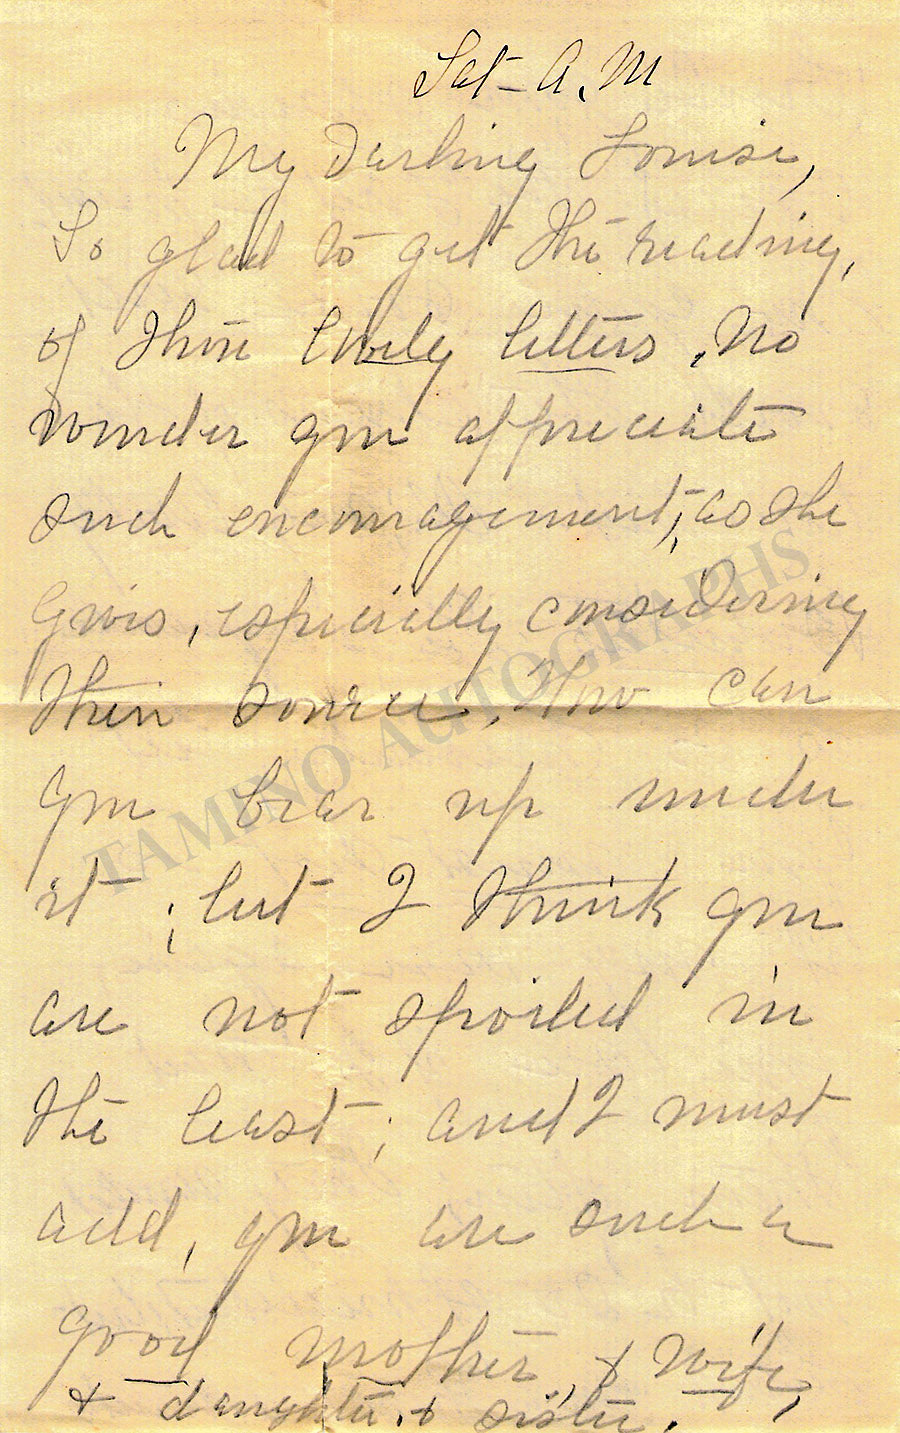 Sat - A.M
My Darling Louise,
So glad to get the reading,
of those lovely letters. No
wonder you appreciate
such encouragement, as she
gives, especially considering
their source. How can
you bear up under
it; but I think you
are not spoiled in
the least; and I must
add, you are such a
good mother, & wife,
& daughter, & sister.
TAMINO AUTOGRAPHS